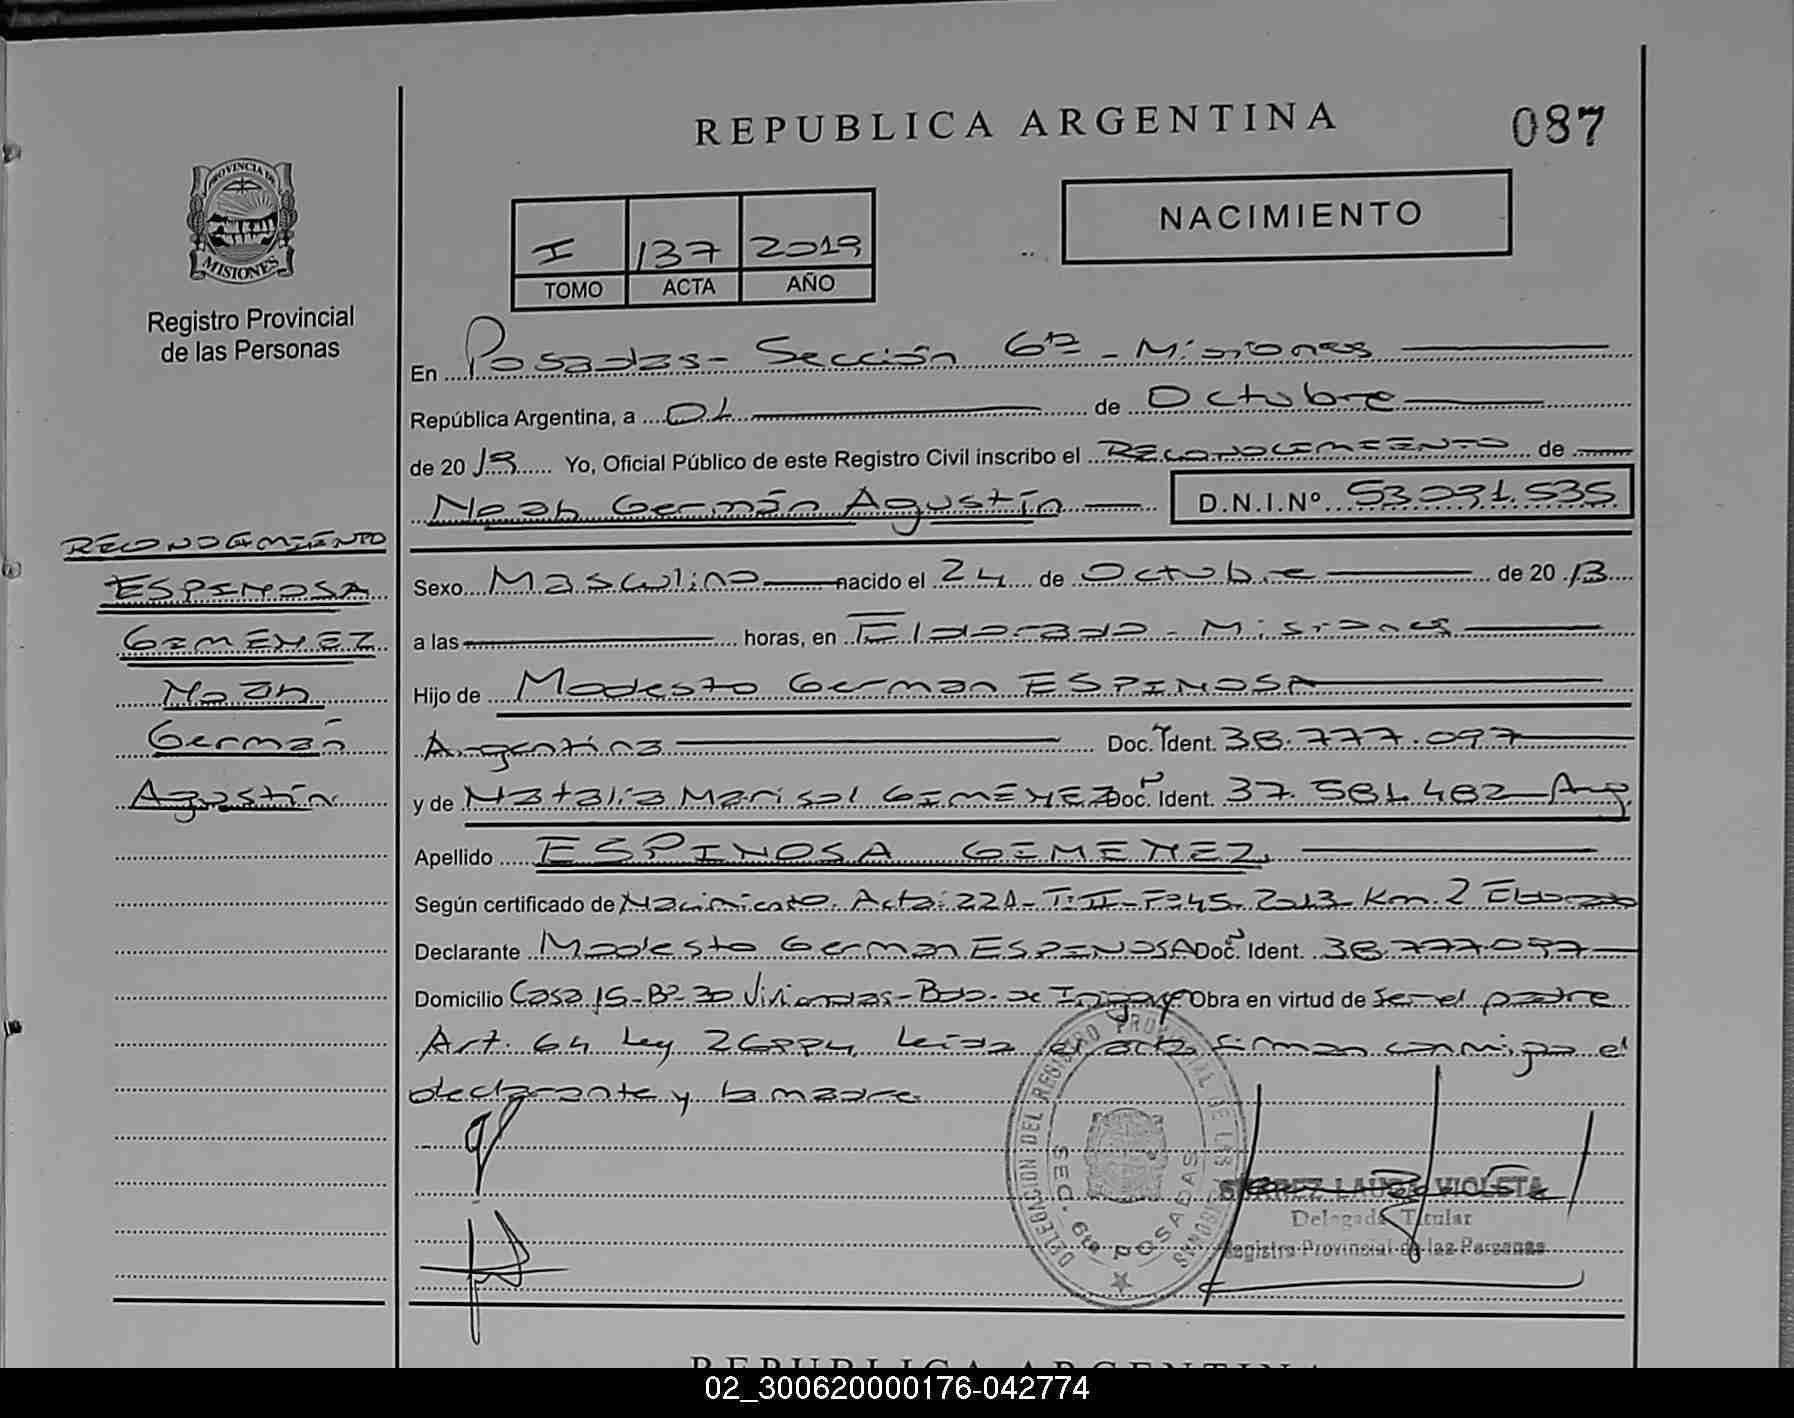 REPUBLICA ARGENTINA
087
PROVINCIA DE
MISIONES
Registro Provincial
de las Personas
I 137 2019
TOMO ACTA AÑO
NACIMIENTO
En Posadas - Sección 6ta - Misiones
República Argentina, a 01 de Octubre
de 2019 Yo, Oficial Público de este Registro Civil inscribo el RECONOCIMIENTO de
Noah Germán Agustín D.N.I.Nº 53.091.535
Sexo Masculino nacido el 24 de Octubre de 2013
a las horas, en Eldorado - Misiones
Hijo de Modesto German ESPINOSA
Argentina Doc. Ident. 38.777.097
y de Natalia Marisol GIMENEZ Doc. Ident. 37.581.482 Arg.
Apellido ESPINOSA GIMENEZ
Según certificado de Nacimiento. Acta: 221 - T: II - Fº 45 - 2013 - Km. 2 Eldorado
Declarante Modesto German ESPINOSA Doc. Ident. 38.777.097
Domicilio Casa 15 - Bº 30 Viviendas - Bdo. de Obra en virtud de ser el padre
Art. 64 Ley 26994. Leída el acta firman conmigo el
declarante y la madre.
RECONOCIMIENTO
ESPINOSA
GIMENEZ
Noah
Germán
Agustín
DELEGACION DEL REGISTRO PROVINCIAL DE LAS PERSONAS
SEC. 6ta POSADAS
SUAREZ LAURA VIOLETA
Delegada Titular
Registro Provincial de las Personas
REPUBLICA ARGENTINA
02_300620000176-042774